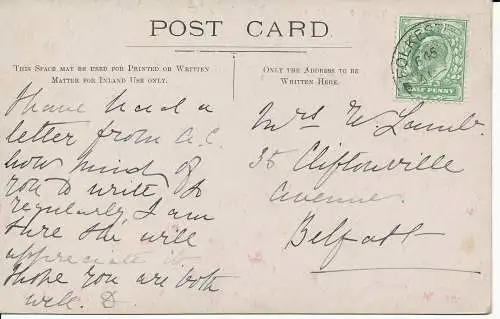 POST CARD.
THIS SPACE MAY BE USED FOR PRINTED OR WRITTEN
MATTER FOR INLAND USE ONLY.
ONLY THE ADDRESS TO BE
WRITTEN HERE.
HALF PENNY
I have had a
letter from A.C.
how kind of
you to write so
regularly, I am
sure she will
appreciate it
I hope you are both
well. D
Mrs W Lamb.
35 Cliftonville
Avenue
Belfast